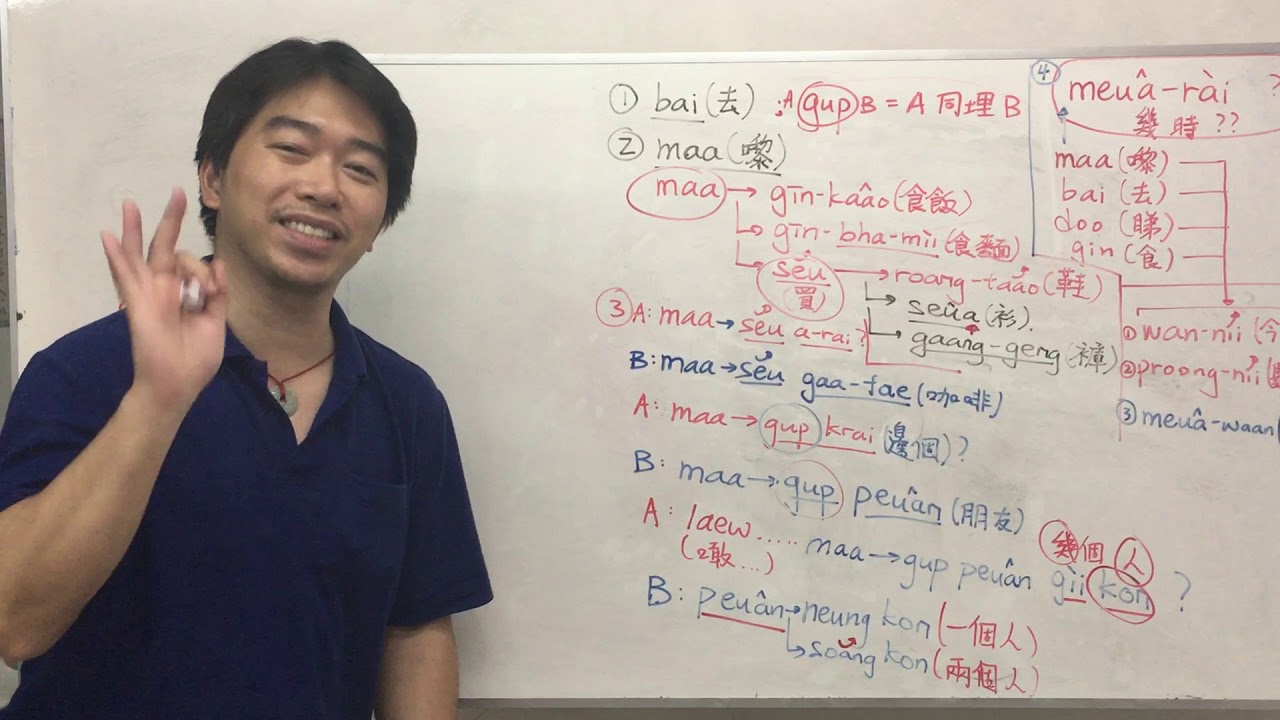 ① bai (去) ; A gup B = A 同埋 B
② maa (嚟)
maa → gīn-kaâo (食飯)
gīn-bha-mìi (食麵)
séu (買) → roang-taáo (鞋)
seûa (衫).
gaang-geng (褲)
③ A: maa → séu a-rai ?
B: maa → séu gaa-fae (咖啡)
A: maa → gup krai (邊個) ?
B: maa → gup peuân (朋友)
A: laew ..... maa → gup peuân gìi kon ?
(噉 ...) 幾個 人
B: peuân → neung kon (一個人)
soang kon (兩個人)
④ meuâ-rài ?
幾時 ??
maa (嚟)
bai (去)
doo (睇)
gin (食)
① wan-níi (今
② proong-níi
③ meuâ-waan (